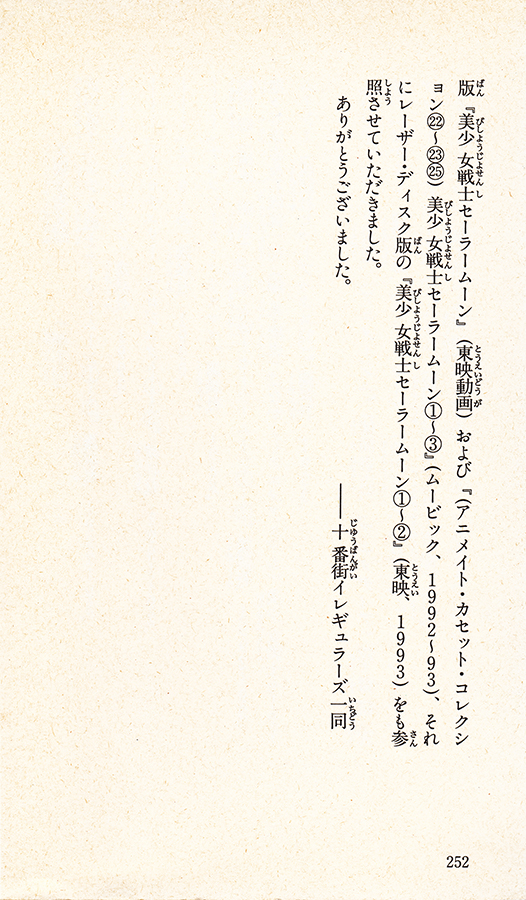 版『美少女戦士セーラームーン』(東映動画)および『(アニメイト・カセット・コレクシ
ョン㉒〜㉓㉕)美少女戦士セーラームーン①〜③』(ムービック、1992〜93)、それ
にレーザー・ディスク版の『美少女戦士セーラームーン①〜②』(東映、1993)をも参
照させていただきました。
ありがとうございました。
――十番街イレギュラーズ一同
252